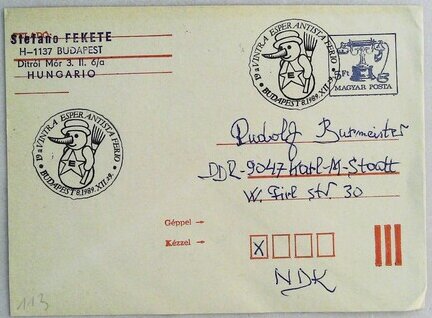 Stefano FEKETE
H-1137 BUDAPEST
Ditrói Mór 3. II. 6/a
HUNGARIO
19a VINTRA ESPERANTISTA FERIO
BUDAPEST 8. 1989. XII. 29.
5Ft
MAGYAR POSTA
19a VINTRA ESPERANTISTA FERIO
BUDAPEST 8. 1989. XII. 29.
Rudolf Burmeister
DDR-9047 Karl-M-Stadt
W. Firl Str. 30
Géppel →
Kézzel →
X
NDK
113